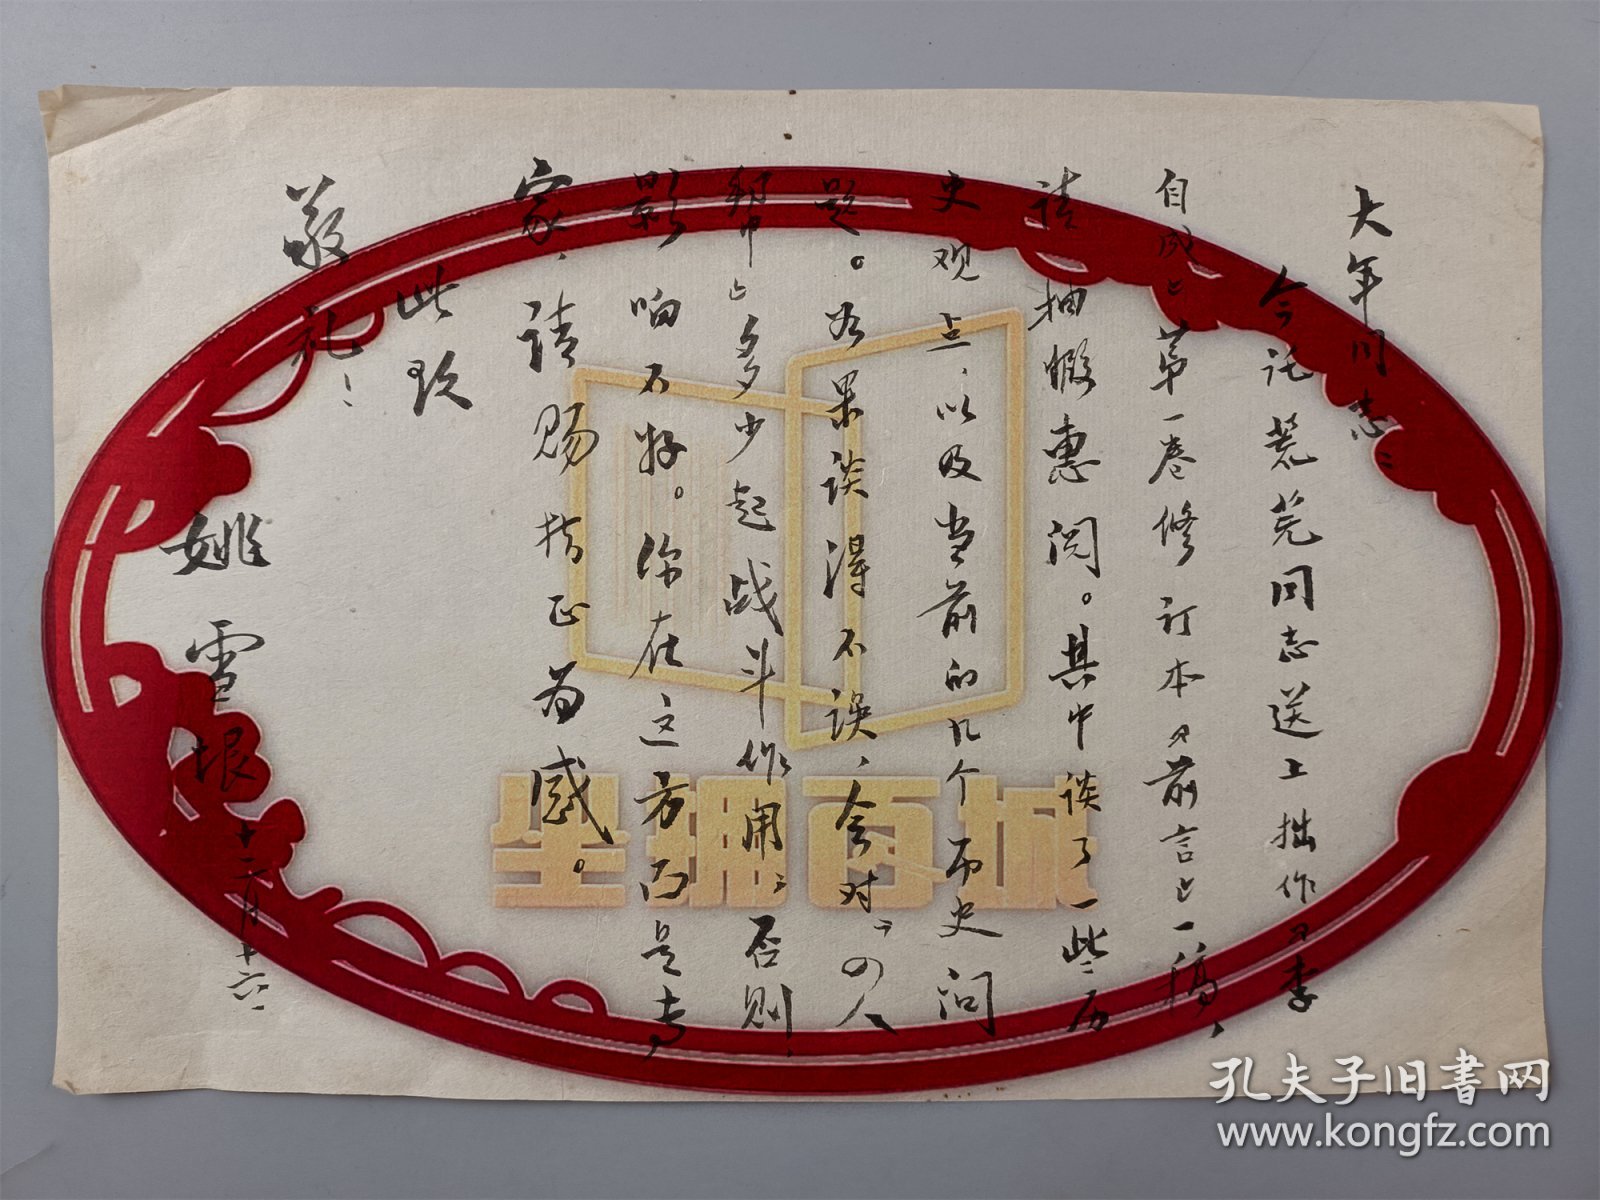 大年同志：
今托荒芜同志送上拙作《李
自成》第一卷修订本《前言》一稿，
请抽暇惠阅。其中谈了一些历
史观点，以及当前的几个历史问
题。如果谈得不误，会对“四人
帮”多少起战斗作用；否则，
影响不好。你在这方面是专
家，请赐指正为感。
此致
敬礼！
姚雪垠
十二月十六
坐拥百城
孔夫子旧书网
www.kongfz.com